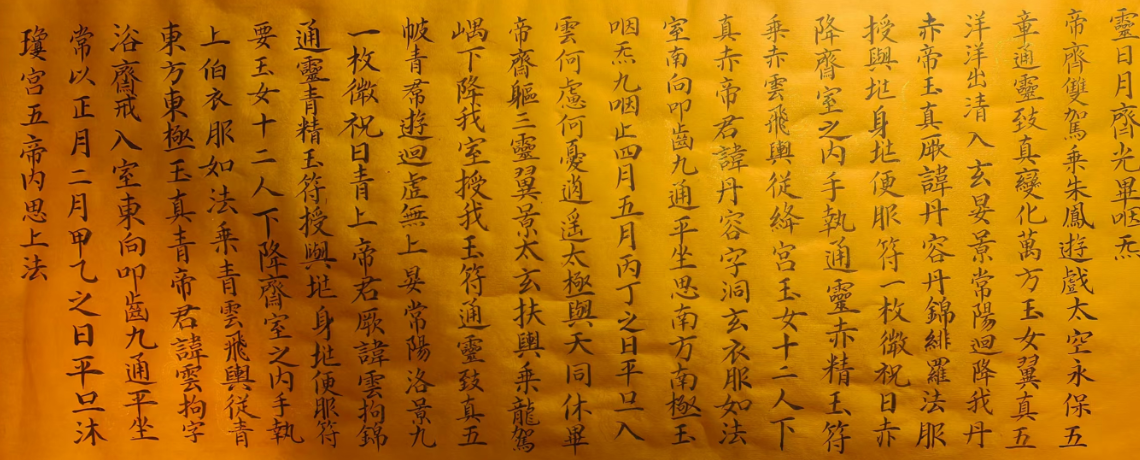 瓊宮五帝內思上法
常以正月二月甲乙之日平旦沐
浴齋戒入室東向叩齒九通平坐
東方東極玉真青帝君諱雲拘字
上伯衣服如法乘青雲飛輿從青
要玉女十二人下降齋室之內手執
通靈青精玉符授與兆身兆便服符
一枚微祝曰青上帝君厥諱雲拘錦
帔青帬遊迴虛無上晏常陽洛景九
嵎下降我室授我玉符通靈致真五
帝齊軀三靈翼景太玄扶輿乘龍駕
雲何慮何憂逍遙太極與天同休畢
咽炁九咽止四月五月丙丁之日平旦入
室南向叩齒九通平坐思南方南極玉
真赤帝君諱丹容字洞玄衣服如法
乘赤雲飛輿從絳宮玉女十二人下
降齋室之內手執通靈赤精玉符
授與兆身兆便服符一枚微祝曰赤
赤帝玉真厥諱丹容丹錦緋羅法服
洋洋出清入玄晏景常陽迴降我丹
章通靈致真變化萬方玉女翼真五
帝齊雙駕乘朱鳳遊戲太空永保五
靈日月齊光畢咽炁